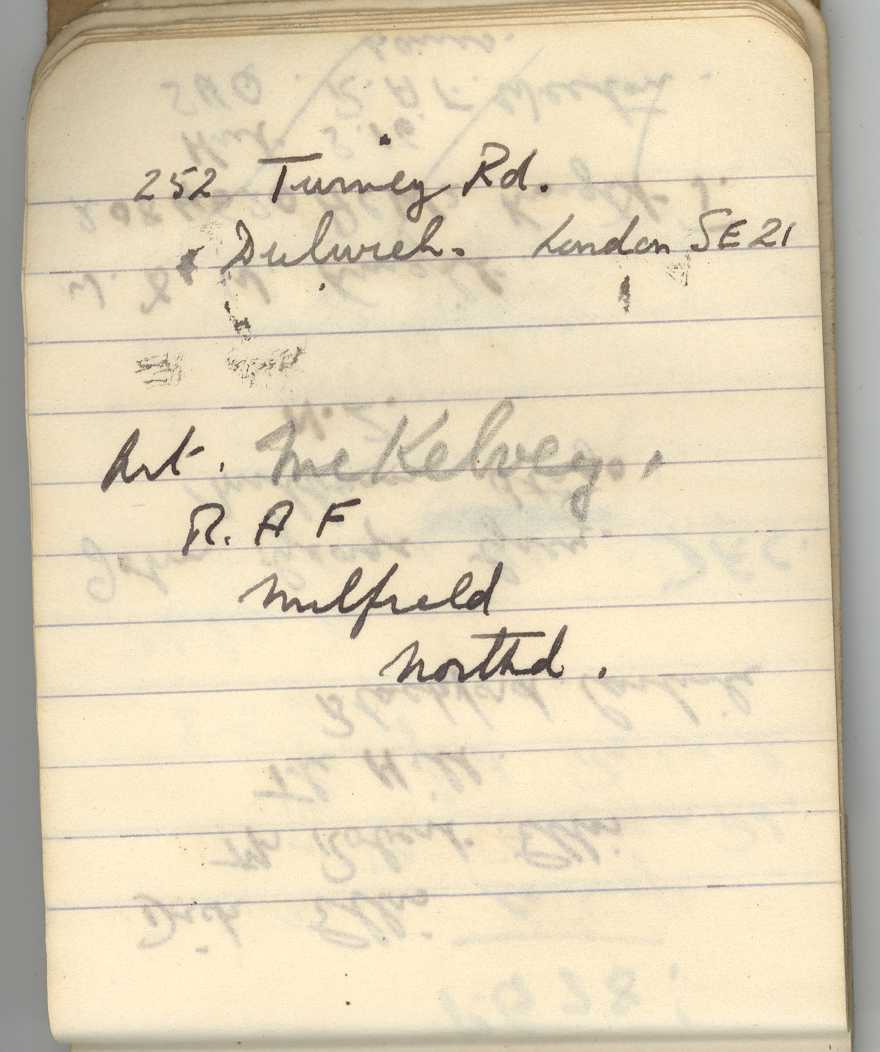 252 Turney Rd.
Dulwich. London SE 21
Art. McKelvey.
R. A F
Milfield
Northd.